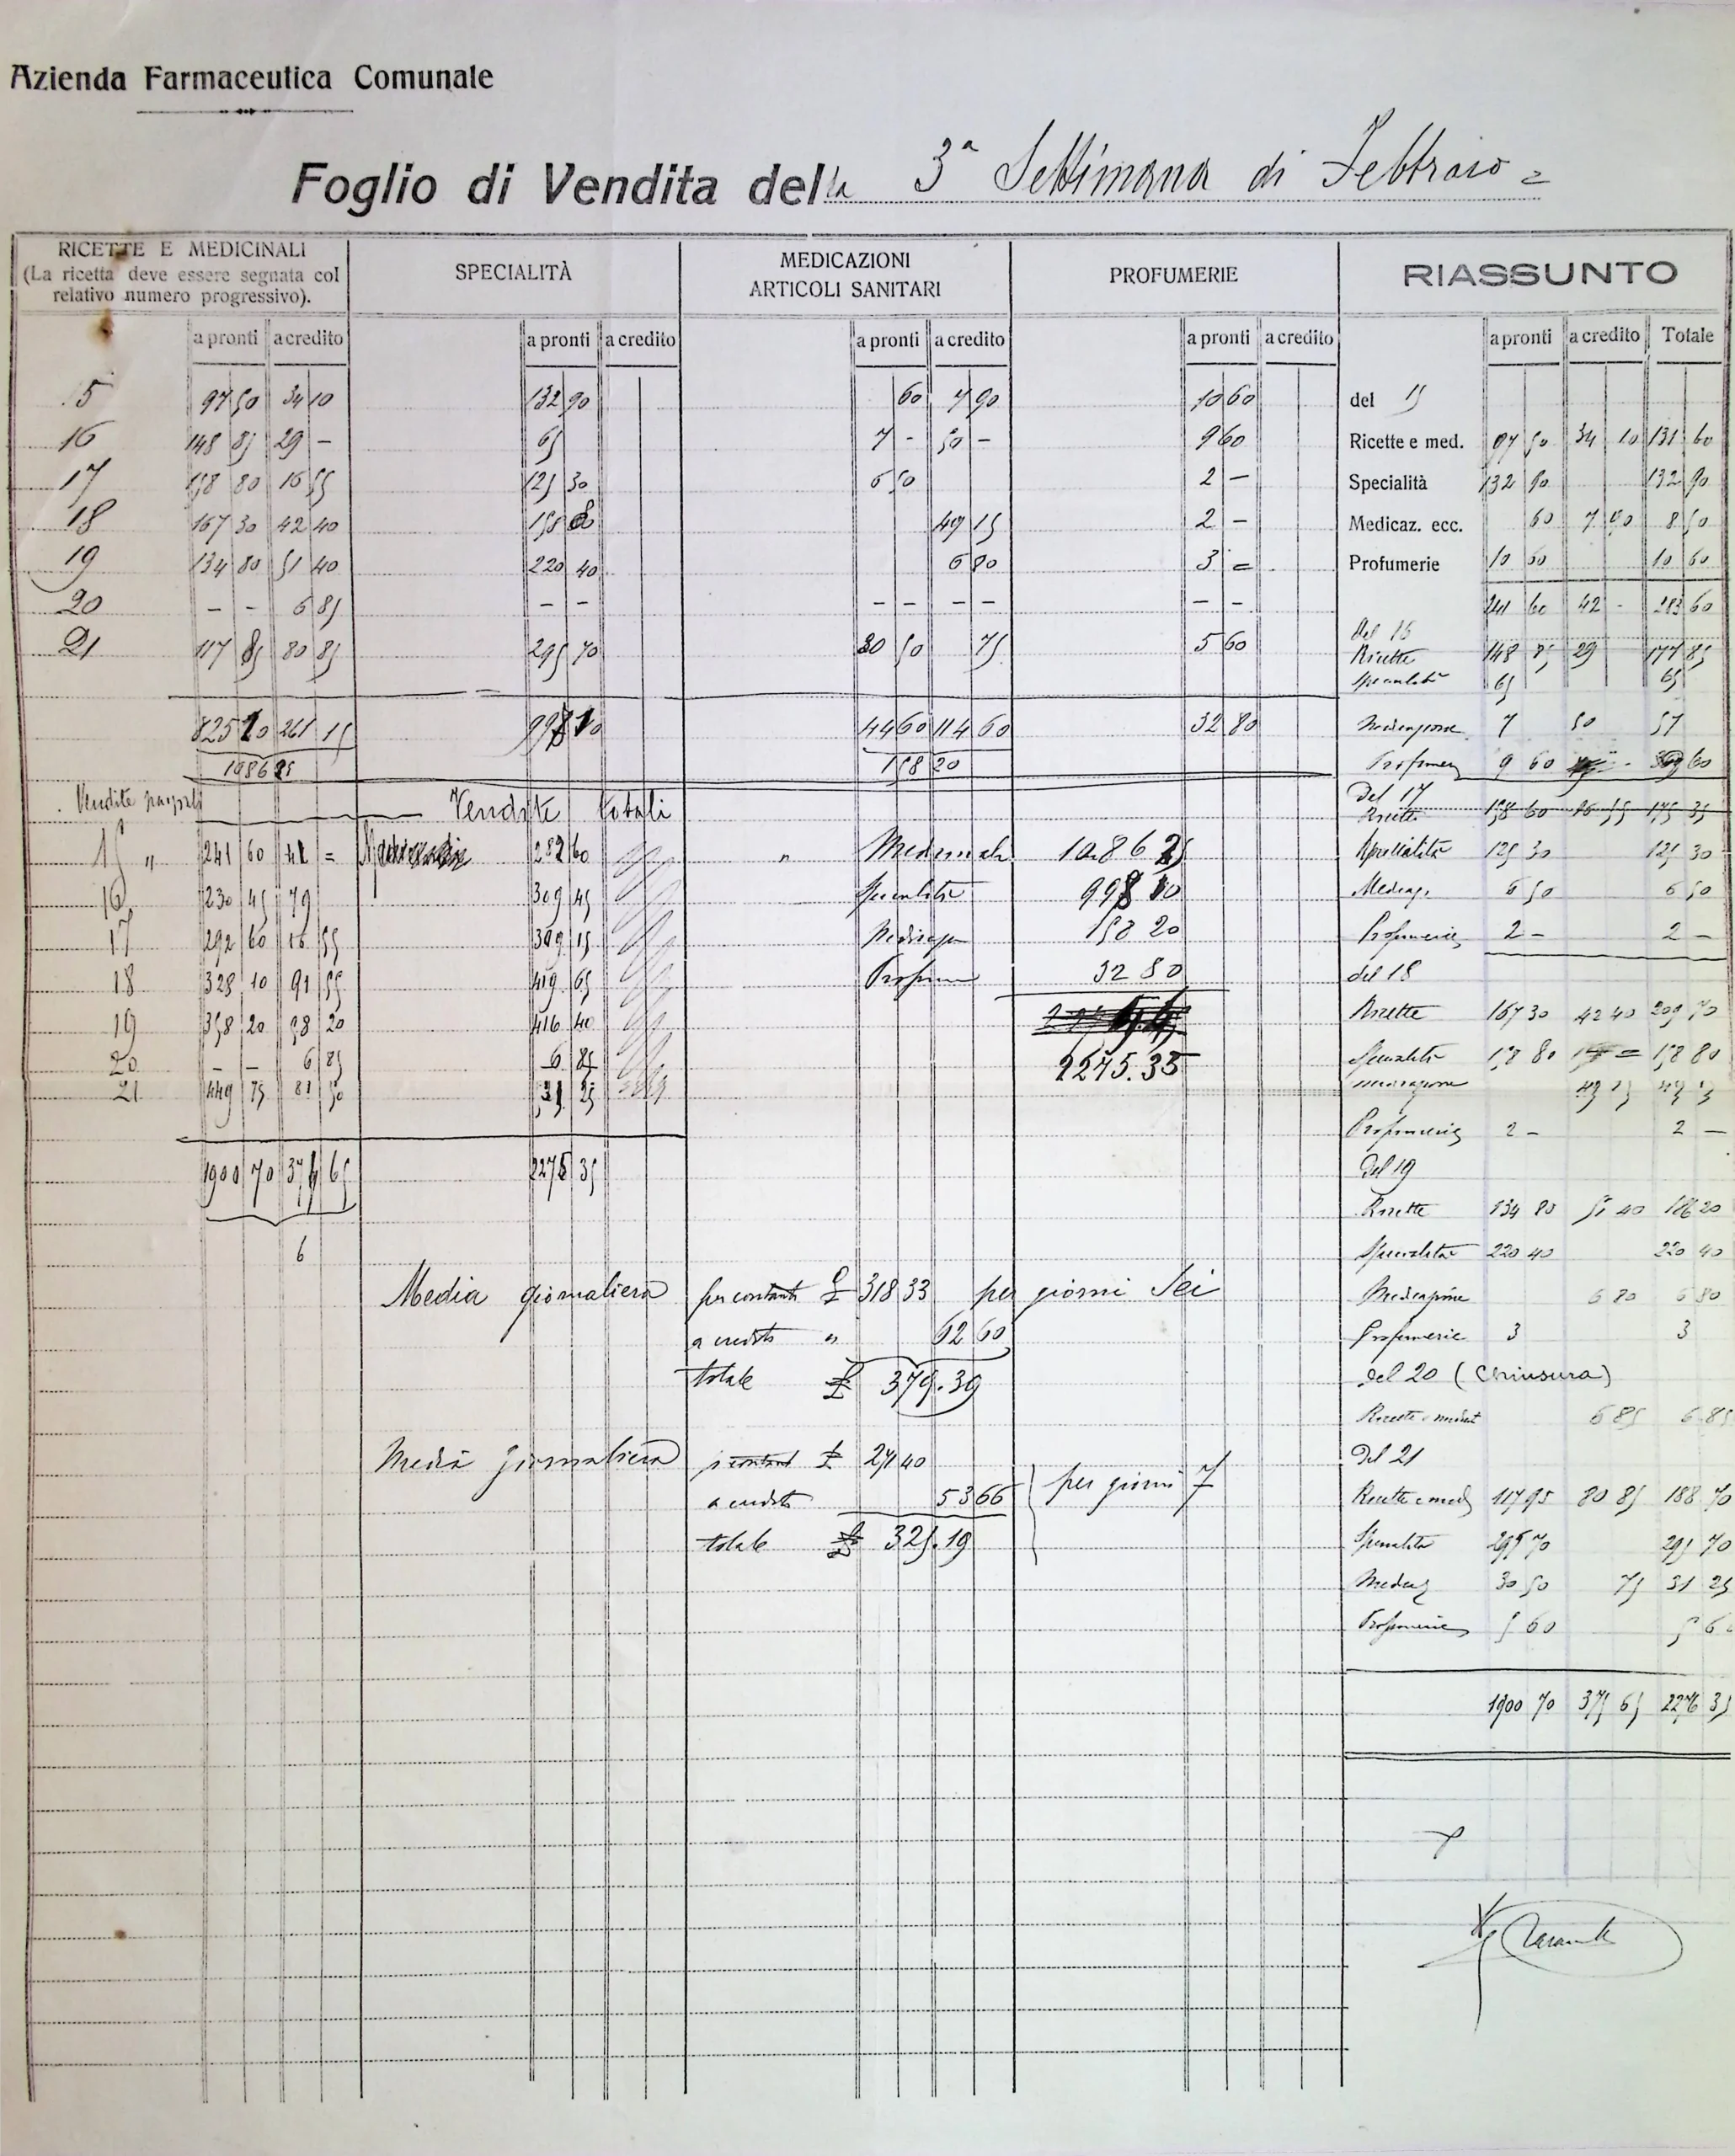 Azienda Farmaceutica Comunale
Foglio di Vendita della 3ª Settimana di Febbraio =
RICETTE E MEDICINALI
(La ricetta deve essere segnata col
relativo numero progressivo).
SPECIALITÀ
MEDICAZIONI
ARTICOLI SANITARI
PROFUMERIE
RIASSUNTO
a pronti a credito a pronti a credito a pronti a credito a pronti a credito a pronti a credito Totale
15 97 50 34 10 132 90 60 7 90 10 60 del 15
16 148 85 29 – 65 7 - 50 – 9 60 Ricette e med. 97 50 34 10 131 60
17 158 80 16 55 125 30 6 50 2 – Specialità 132 90 132 90
18 167 30 42 40 158 80 49 15 2 – Medicaz. ecc. 60 7 90 8 50
19 134 80 51 40 220 40 6 80 3 = Profumerie 10 60 10 60
20 – – 6 85 – – – – – – – – 241 60 42 - 283 60
del 16
21 117 85 80 85 295 70 30 50 75 5 60 Ricette 148 85 29 177 85
Specialità 65 65
825 10 261 15 998 10 44 60 114 60 32 80 Medicazione 7 50 57
1086 25 158 20 Profumer 9 60
Vendite Vendite totali del 17
Ricette 158 80 16 55 175 35
15 " 241 60 42 = 282 60 " Medicinali 1086 25 Specialità 125 30 125 30
16 230 45 79 309 45 Specialità 998 10 Medicaz. 6 50 6 50
17 292 60 16 55 309 15 Medicaz 158 20 Profumerie 2 – 2 –
18 328 10 91 55 419 65 Profum 32 80 del 18
19 358 20 58 20 416 40 Ricette 167 30 42 40 209 70
20 – – 6 85 6 85 2275.35 Specialità 158 80 158 80
21 449 75 81 50 531 25 medicazione 49 15 49 15
Profumerie 2 – 2 —
1900 70 374 65 2275 35 del 19
Ricette 134 80 51 40 186 20
6 Specialità 220 40 220 40
Media giornaliera per contanti £ 318 33 per giorni Sei Medicazione 6 80 6 80
a credito " 62 60 Profumerie 3 3
totale £ 379.39 del 20 (Chiusura)
Ricette e medicat 6 85 6 85
Media giornaliera p contanti £ 271 40 del 21
a credito 53 66 per giorni 7 Ricette e med 117 95 80 85 188 70
totale £ 325.19 Specialità 295 70 295 70
Medicaz 30 50 75 31 25
Profumerie 5 60 5 60
1900 70 375 65 2276 35